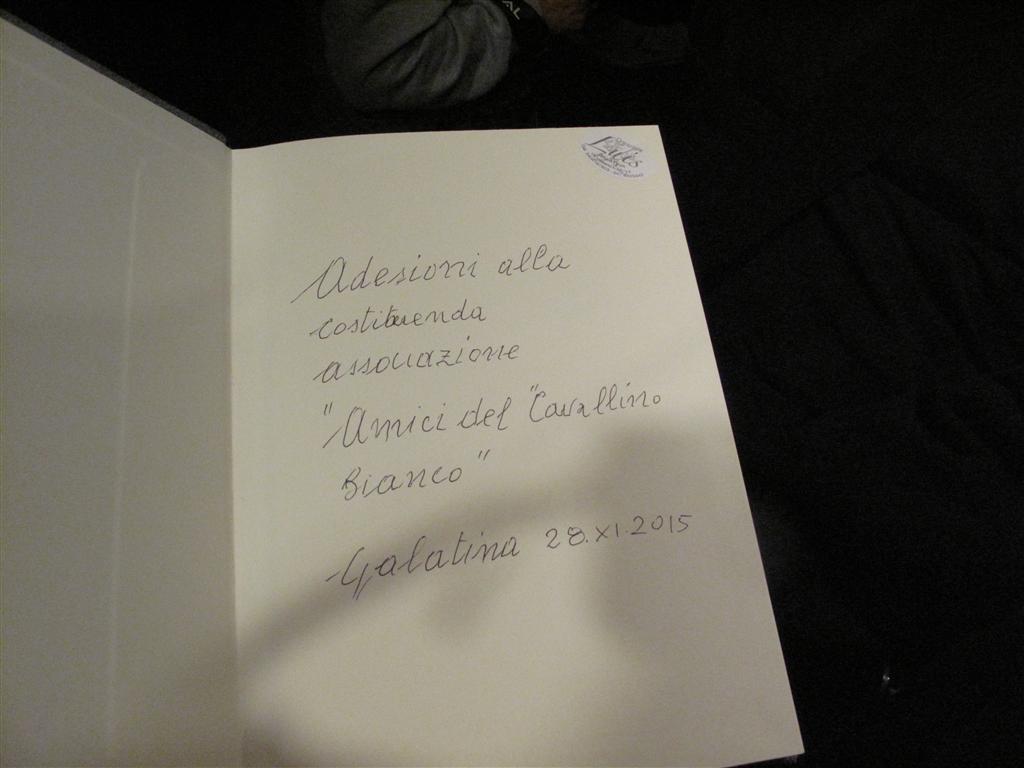 AL
Adesioni alla
costituenda
associazione
"Amici del "Cavallino
Bianco"
Galatina 28.XI.2015